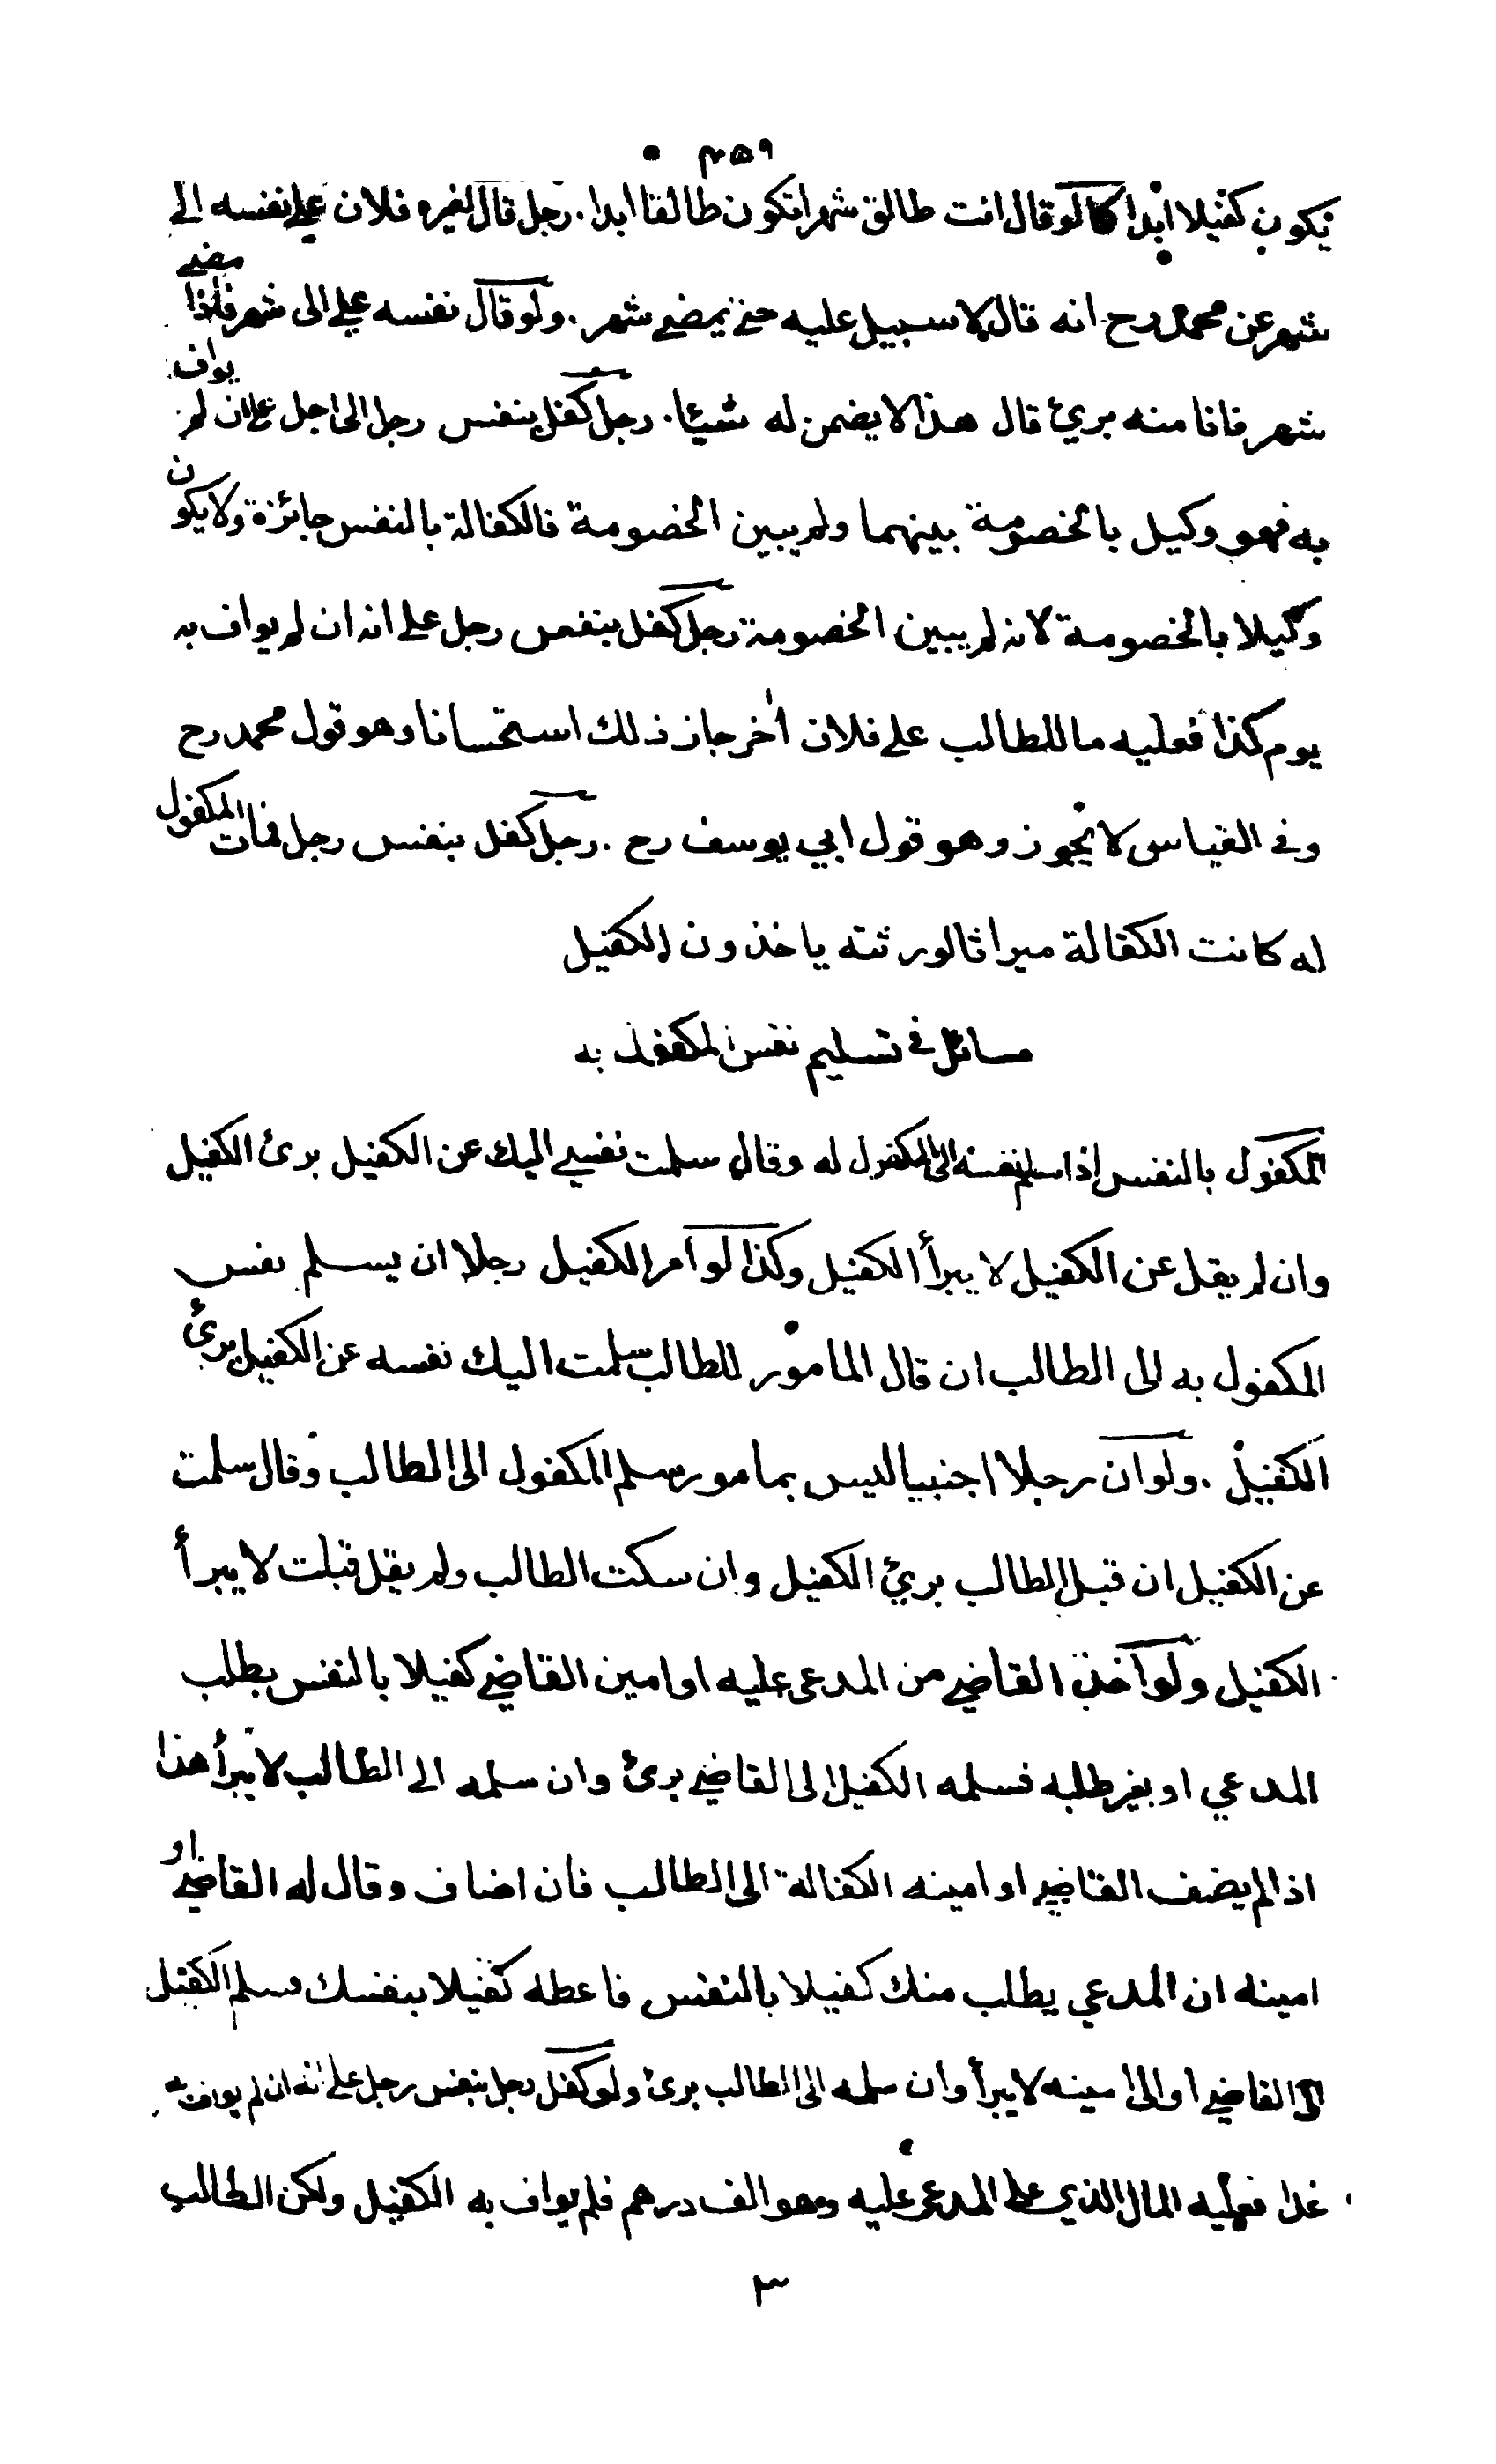 ٤٥٩
يكون كفيلا ابدا كما لو قال انت طالق شهرا تكون طالقا ابدا . رجل قال لغيره فلان علي نفسه الى
شهر عن محمد رح انه قال لا سبيل عليه حتى يمضي شهر . ولو قال نفسه علي الى شهر فاذا مضى
شهر فانا منه بريئ قال هذا لا يضمن له شيئا . رجل كفل بنفس رجل الى اجل على ان لم يواف
به فهو وكيل بالخصومة بينهما ولم يبين الخصومة فالكفالة بالنفس جائزة ولا يكون
وكيلا بالخصومة لانه لم يبين الخصومة رجل كفل بنفس رجل على انه ان لم يواف به
يوم كذا فعليه ما للطالب على فلان اخر جاز ذلك استحسانا وهو قول محمد رح
وفي القياس لا يجوز وهو قول ابي يوسف رح . رجل كفل بنفس رجل فمات المكفول
له كانت الكفالة ميراثا لورثته ياخذون الكفيل
مسائل في تسليم نفس المكفول به
المكفول بالنفس اذا سلم نفسه الى المكفول له وقال سلمت نفسي اليك عن الكفيل برئ الكفيل
وان لم يقل عن الكفيل لا يبرأ الكفيل وكذا لو امر الكفيل رجلا ان يسلم نفس
المكفول به الى الطالب ان قال المامور للطالب سلمت اليك نفسه عن الكفيل برئ
الكفيل . ولو ان رجلا اجنبيا ليس بمامور سلم المكفول الى الطالب وقال سلمت
عن الكفيل ان قبل الطالب بريئ الكفيل وان سكت الطالب ولم يقل قبلت لا يبرأ
الكفيل ولو اخذ القاضي من المدعى عليه او امين القاضي كفيلا بالنفس بطلب
المدعي او بغير طلبه فسلمه الكفيل الى القاضي برئ وان سلمه الى الطالب لا يبرأ هذا
اذا لم يضف القاضي او امينه الكفالة الى الطالب فان اضاف وقال له القاضي او
امينه ان المدعي يطلب منك كفيلا بالنفس فاعطه كفيلا بنفسك فسلم الكفيل
الى القاضي او الى امينه لا يبرأ وان سلمه الى الطالب برئ ولو كفل رجل بنفس رجل على انه ان لم يواف به
غدا فعليه المال الذي على المدعى عليه وهو الف درهم فلم يواف به الكفيل ولكن الطالب
٣